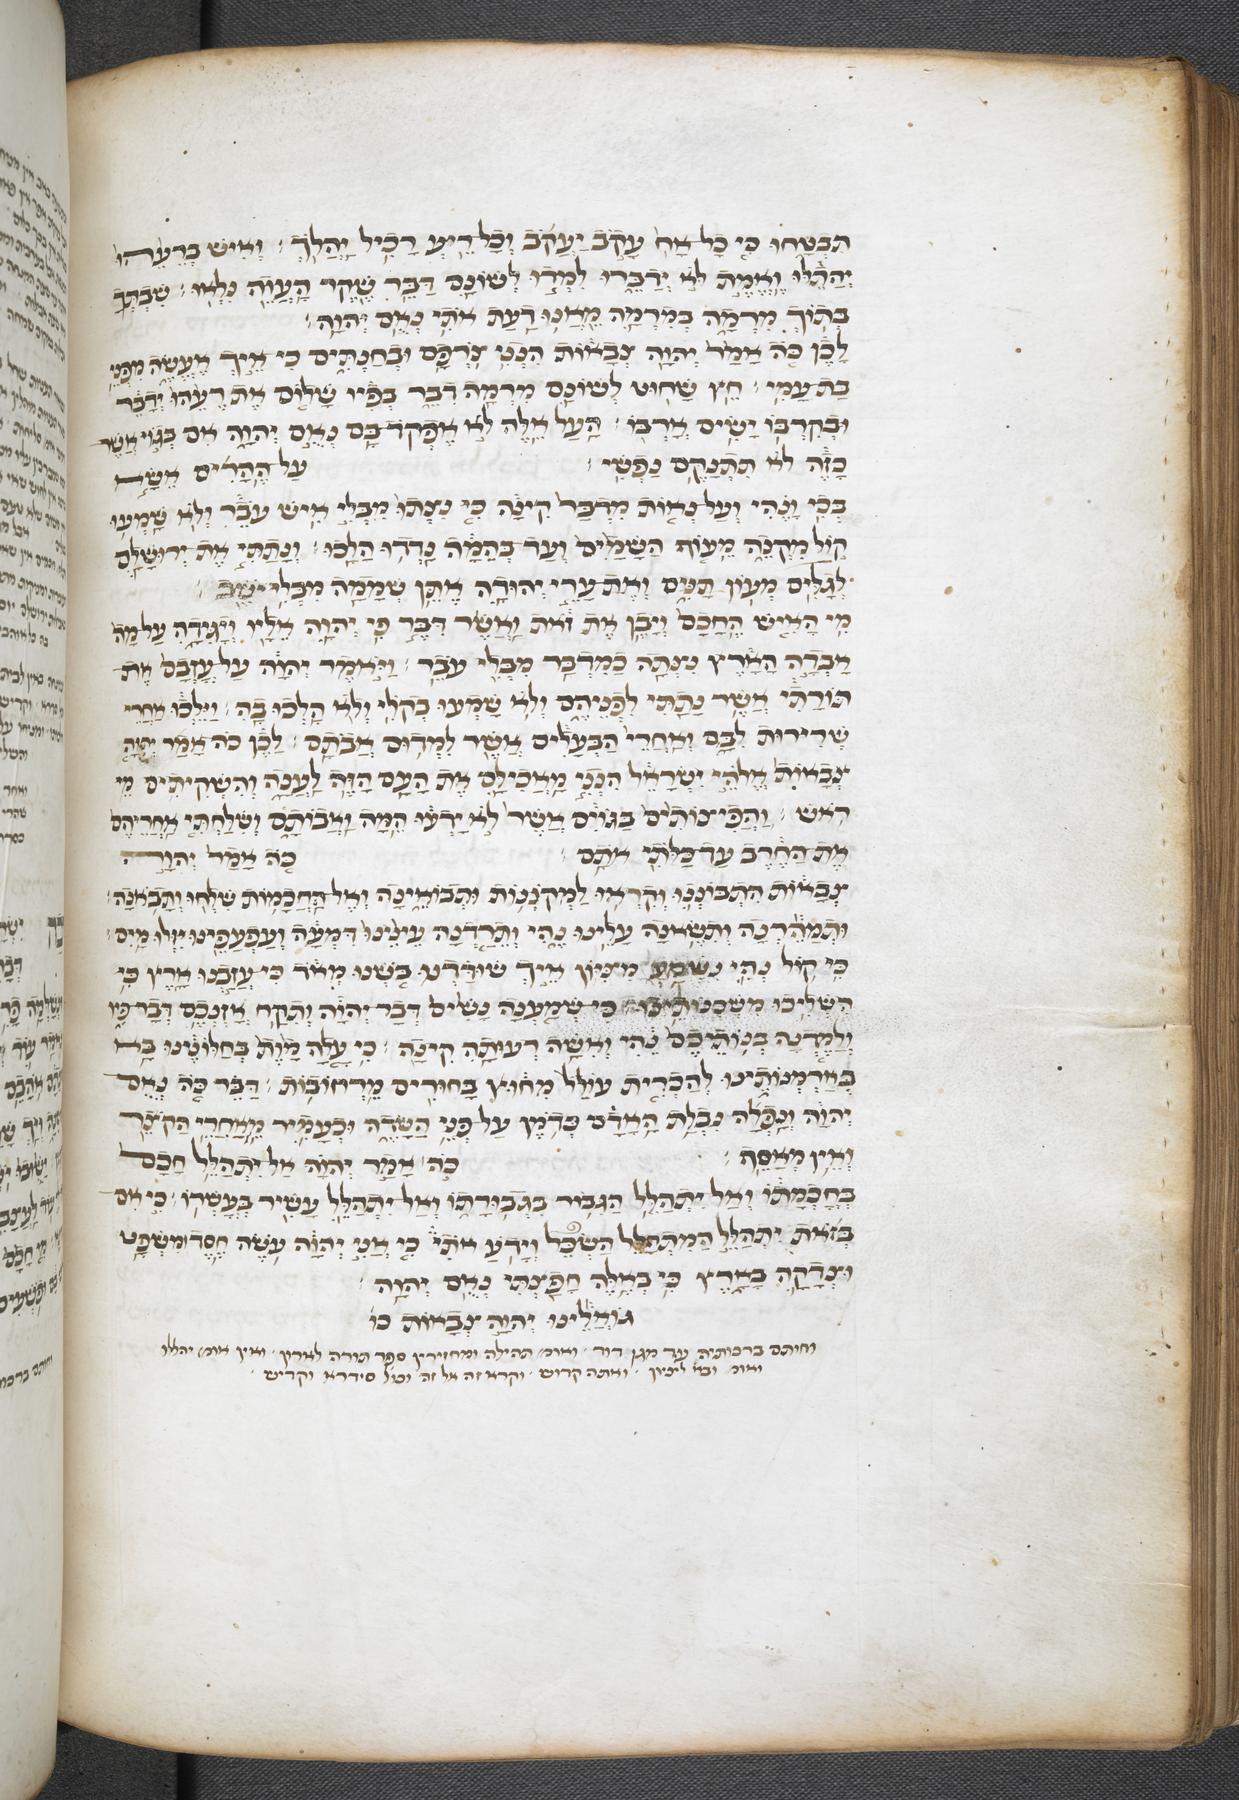 תבטחו כי כל אח עקב יעקב וכל ריע רכיל יהלך : ואיש ברעהו
יהתלו ואמת לא ידברו למדו לשונם דבר שקר העוה נלאו : שבתך
בתוך מרמה במרמה מאנו דעת אתי נאם יהוה :
לכן כה אמר יהוה צבאות הנני צרפם ובחנתים כי איך אעשה מפני
בת עמי : חץ שחוט לשונם מרמה דבר בפיו שלום את רעהו ידבר
ובקרבו ישים ארבו : העל אלה לא אפקד בם נאם יהוה אם בגוי אשר
כזה לא תתנקם נפשי : על ההרים אשא
בכי ונהי ועל נאות מדבר קינה כי נצתו מבלי איש עבר ולא שמעו
קול מקנה מעוף השמים ועד בהמה נדדו הלכו : ונתתי את ירושלם
לגלים מעון תנים ואת ערי יהודה אתן שממה מבלי ישב :
מי האיש החכם ויבן את זאת ואשר דבר פי יהוה אליו ויגידה על מה
אבדה הארץ נצתה כמדבר מבלי עבר : ויאמר יהוה על עזבם את
תורתי אשר נתתי לפניהם ולא שמעו בקולי ולא הלכו בה : וילכו אחרי
שרירות לבם ואחרי הבעלים אשר למדום אבתם : לכן כה אמר יהוה
צבאות אלהי ישראל הנני מאכילם את העם הזה לענה והשקיתים מי
ראש : והפיצותים בגוים אשר לא ידעו המה ואבותם ושלחתי אחריהם
את החרב עד כלותי אותם : כה אמר יהוה
צבאות התבוננו וקראו למקוננות ותבואינה ואל החכמות שלחו ותבואנה :
ותמהרנה ותשאנה עלינו נהי ותרדנה עינינו דמעה ועפעפינו יזלו מים :
כי קול נהי נשמע מציון איך שודדנו בשנו מאד כי עזבנו ארץ כי
השליכו משכנותינו : כי שמענה נשים דבר יהוה ותקח אזנכם דבר פיו
ולמדנה בנותיכם נהי ואשה רעותה קינה : כי עלה מות בחלונינו בא
בארמנותינו להכרית עולל מחוץ בחורים מרחובות : דבר כה נאם
יהוה ונפלה נבלת האדם כדמן על פני השדה וכעמיר מאחרי הקוצר
ואין מאסף : כה אמר יהוה אל יתהלל חכם
בחכמתו ואל יתהלל הגבור בגבורתו ואל יתהלל עשיר בעשרו : כי אם
בזאת יתהלל המתהלל השכל וידע אותי כי אני יהוה עשה חסד ומשפט
וצדקה בארץ כי באלה חפצתי נאם יהוה :
גואלינו יהוה צבאות כו
וחותם ברכותיה עד מגן דוד ואומ׳ תהילה ומחזירין ספר תורה לארון ואין אומ׳ יהללו
ואומ׳ ובא לציון ואתה קדוש וקרא זה אל זה וכל סידרא וקדיש